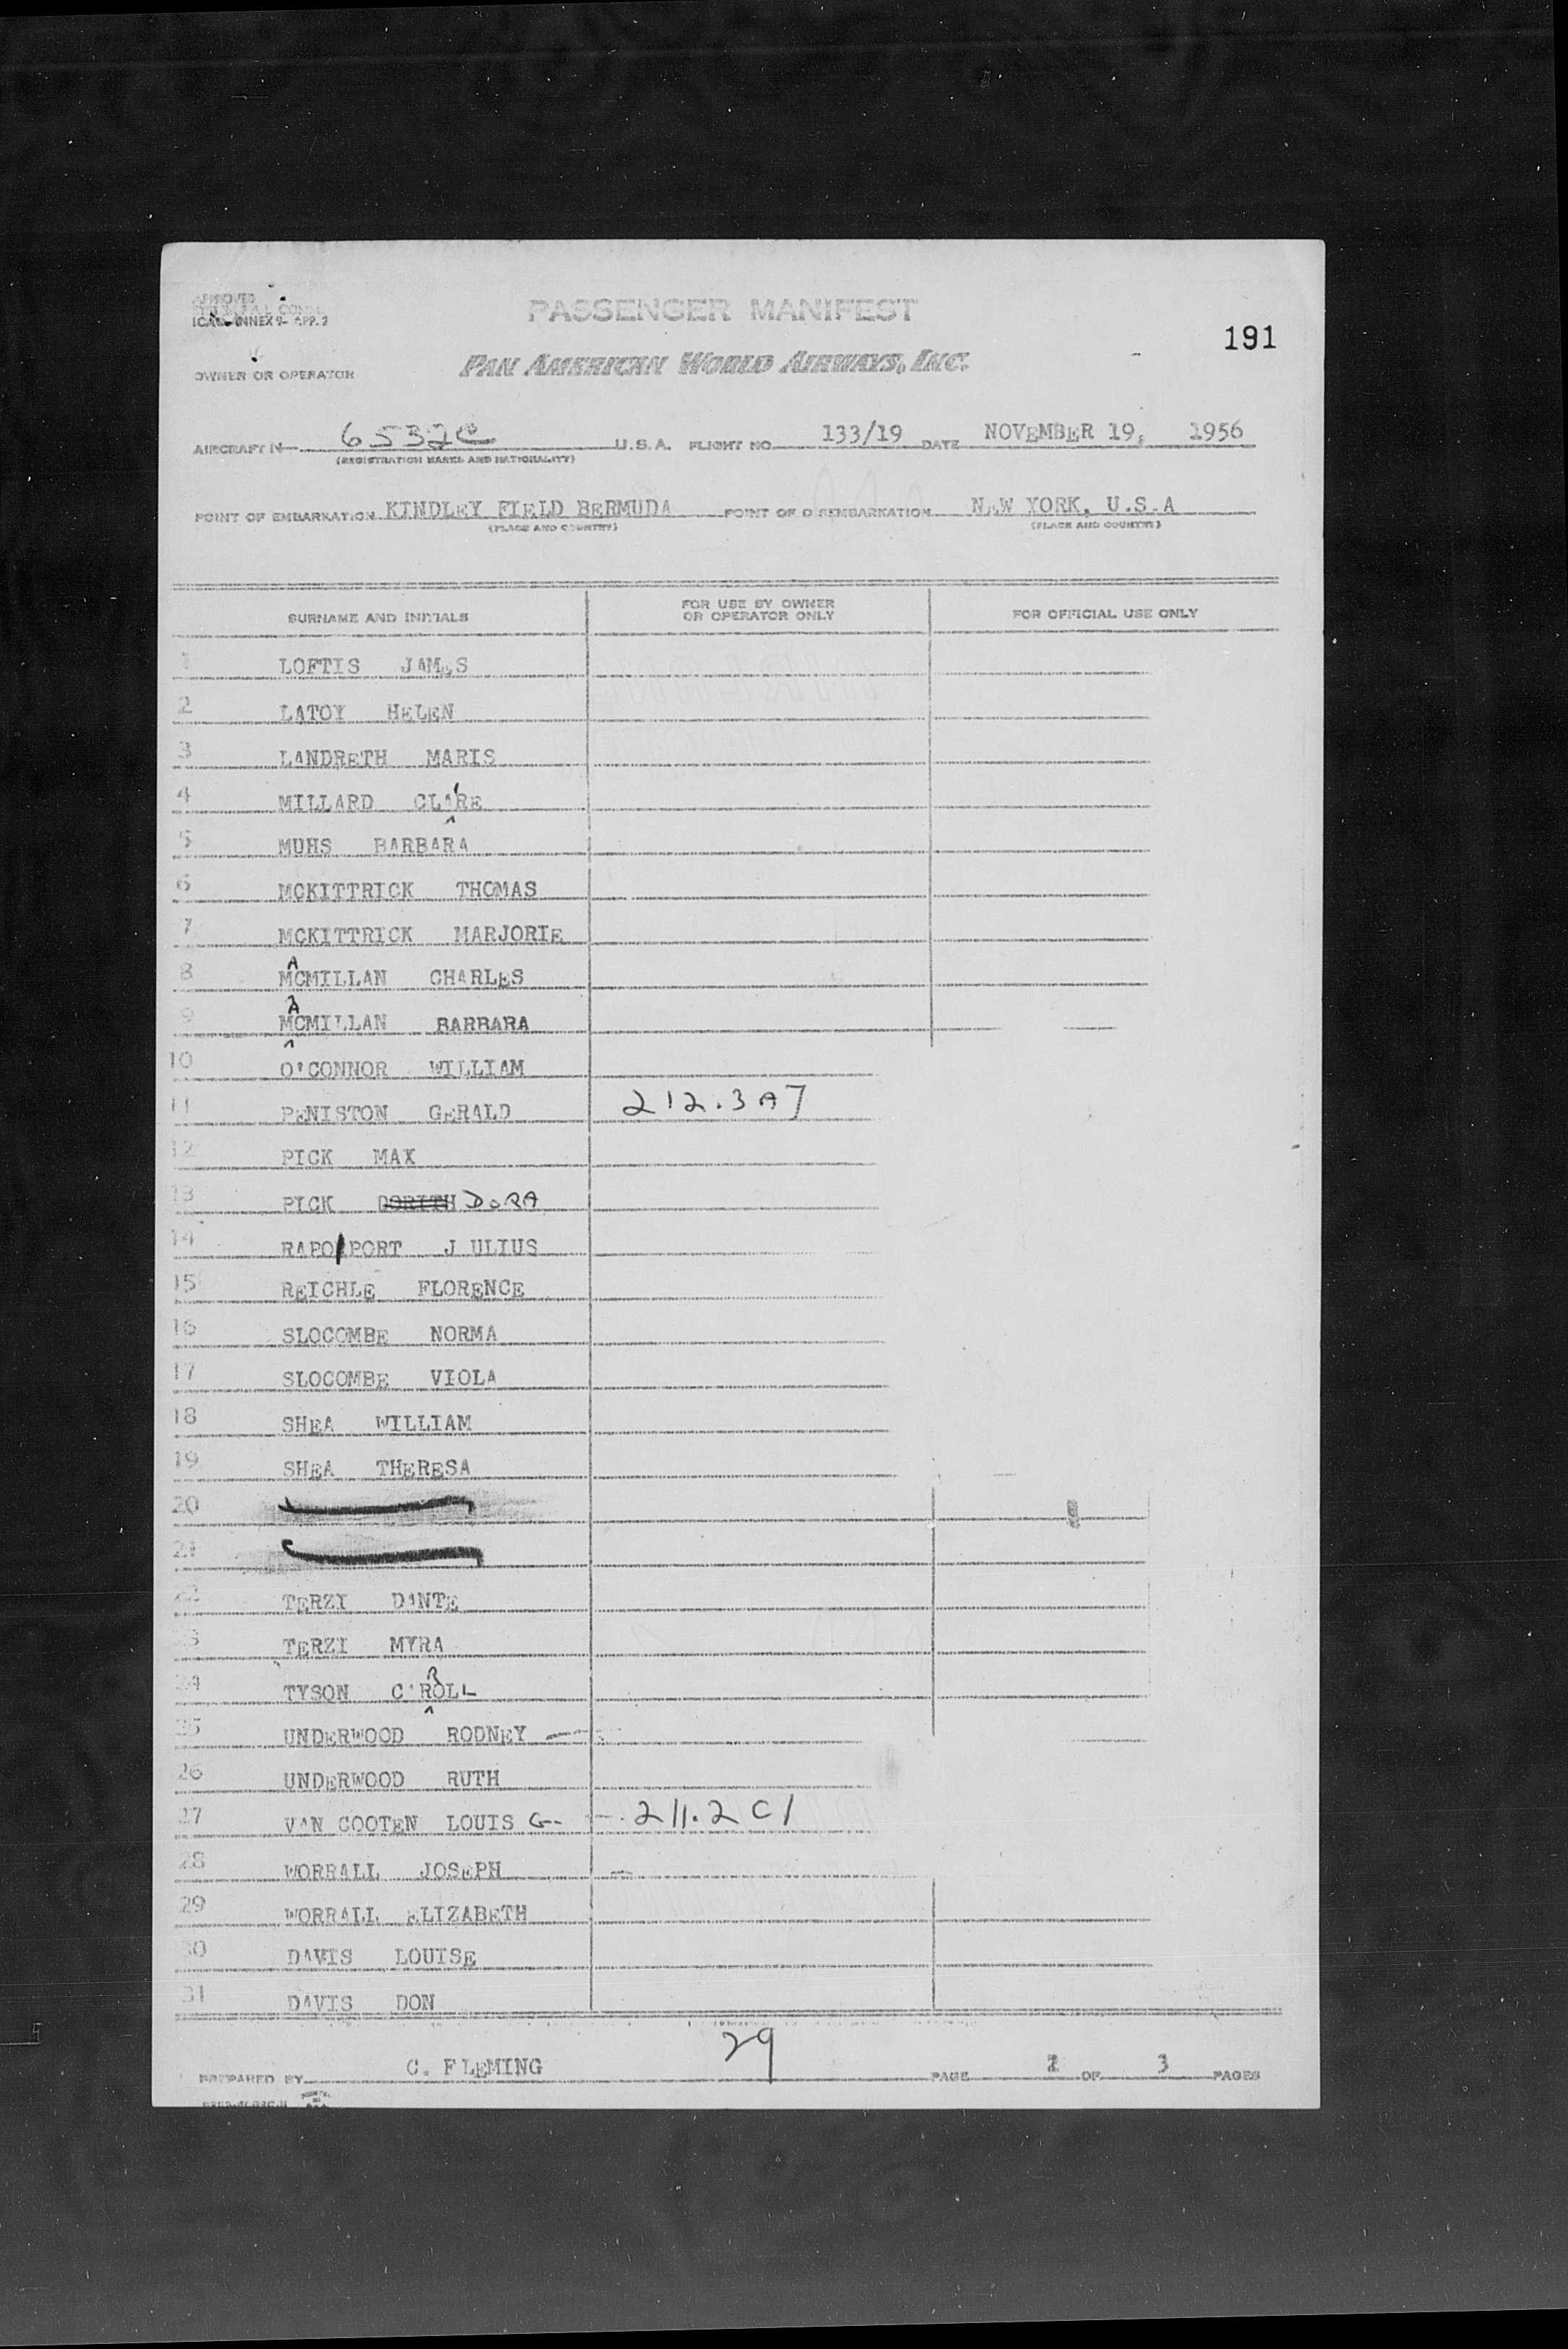 APPROVED
ICAO ANNEX 9- APP. 2
PASSENGER MANIFEST
191
OWNER OR OPERATOR
PAN AMERICAN WORLD AIRWAYS, INC.
AIRCRAFT N 6532C U.S.A. FLIGHT NO. 133/19 DATE NOVEMBER 19, 1956
(REGISTRATION MARKS AND NATIONALITY)
POINT OF EMBARKATION KINDLEY FIELD BERMUDA POINT OF DISEMBARKATION NEW YORK, U.S.A
(PLACE AND COUNTRY) (PLACE AND COUNTRY)
SURNAME AND INITIALS FOR USE BY OWNER OR OPERATOR ONLY FOR OFFICIAL USE ONLY
1 LOFTIS JAMES
2 LATOY HELEN
3 LANDRETH MARIS
4 MILLARD CLAIRE
5 MUHS BARBARA
6 MCKITTRICK THOMAS
7 MCKITTRICK MARJORIE
8 MACMILLAN CHARLES
9 MACMILLAN BARBARA
10 O'CONNOR WILLIAM
11 PENISTON GERALD 212.3A7
12 PICK MAX
13 PICK DORITH DORA
14 RAPOPORT JULIUS
15 REICHLE FLORENCE
16 SLOCOMBE NORMA
17 SLOCOMBE VIOLA
18 SHEA WILLIAM
19 SHEA THERESA
20
21
22 TERZI DANTE
23 TERZI MYRA
24 TYSON CARROLL
25 UNDERWOOD RODNEY
26 UNDERWOOD RUTH
27 VAN COOTEN LOUIS G. 211.2C1
28 WORRALL JOSEPH
29 WORRALL ELIZABETH
30 DAVIS LOUISE
31 DAVIS DON
29
PREPARED BY C. FLEMING PAGE 2 OF 3 PAGES